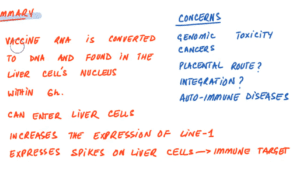 MMARY
VACCINE RNA IS CONVERTED
TO DNA AND FOUND IN THE
LIVER CELL'S NUCLEUS
WITHIN 6h.
CAN ENTER LIVER CELLS
INCREASES THE EXPRESSION OF LINE-1
EXPRESSES SPIKES ON LIVER CELLS → IMMUNE TARGET
CONCERNS
GENOMIC TOXICITY
CANCERS
PLACENTAL ROUTE?
INTEGRATION?
AUTO-IMMUNE DISEASES